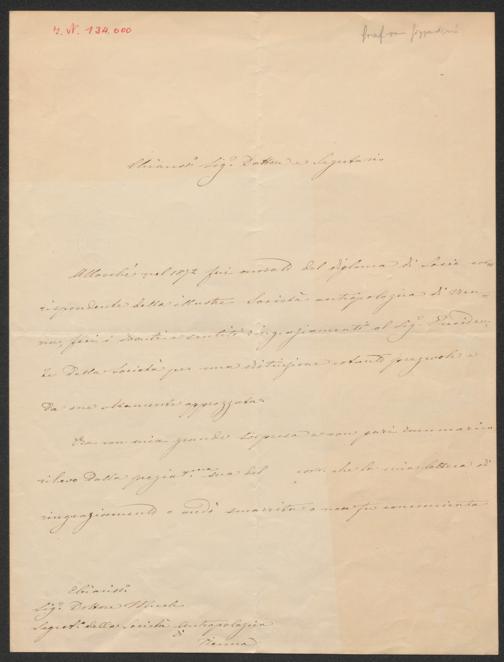 I. N. 134.000
Chiariss. Sig.r Dottore e Segretario
Allorchè nel 1872 fui onorato del diploma di Socio cor-
rispondente della illustre Società antropologica di Vien-
na, feci i dovuti e sentiti ringraziamenti al Sig.r Presiden-
te della Società per una distinzione cotanto pregevole e
da me altamente apprezzata.
Ora con mia grande sorpresa e non pari rammarico
rilevo dalla pregiat.ma sua del corr. che la mia lettera di
ringraziamento o andò smarrita o non fu
Chiariss.
Sig.r Dottore
Segret.o della Società Antropologica
di
Vienna